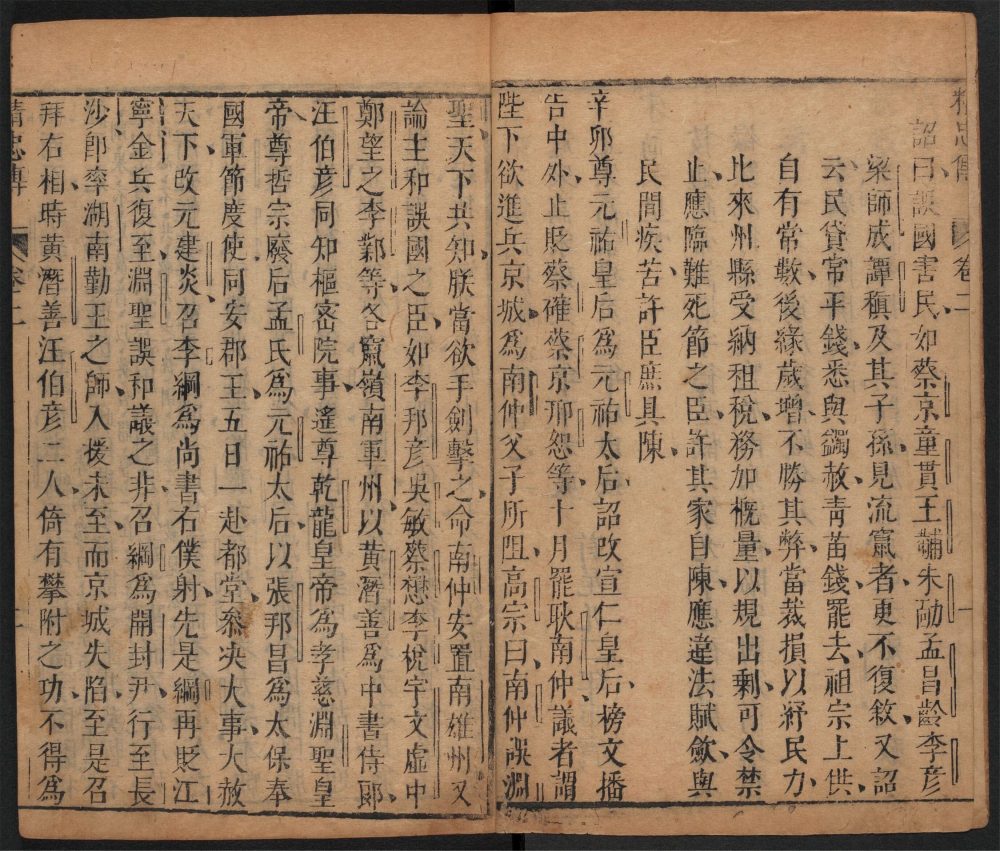 精忠傳 卷二 一
詔曰誤國害民如蔡京童貫王黼朱勔孟昌齡李彥
梁師成譚稹及其子孫見流竄者更不復敘又詔
云民貸常平錢悉與蠲赦青苗錢罷去祖宗上供
自有常數後緣歲增不勝其弊當裁損以紓民力
比來州縣受納租稅務加概量以規出剩可令禁
止應臨難死節之臣許其家自陳應違法賦斂與
民間疾苦許臣庶具陳
辛卯尊元祐皇后為元祐太后詔改宣仁皇后榜文播
告中外止貶蔡確蔡京邢恕等十月罷耿南仲議者謂
陛下欲進兵京城爲南仲父子所阻高宗曰南仲誤淵
聖天下共知朕當欲手劍擊之命南仲安置南雄州又
論主和誤國之臣如李邦彦吳敏蔡懋李梲宇文虛中
鄭望之李鄴等各竄嶺南軍州以黃潛善爲中書侍郎
汪伯彦同知樞密院事遙尊乾龍皇帝爲孝慈淵聖皇
帝尊哲宗廢后孟氏爲元祐太后以張邦昌爲太保奉
國軍節度使同安郡王五日一赴都堂叅决大事大赦
天下改元建炎召李綱爲尚書右僕射先是綱再貶江
寧金兵復至淵聖誤和議之非召綱爲開封尹行至長
沙郎率湖南勤王之師入援未至而京城失陷至是召
拜右相時黃潛善汪伯彦二人倚有攀附之功不得爲
精忠傳 卷二 二